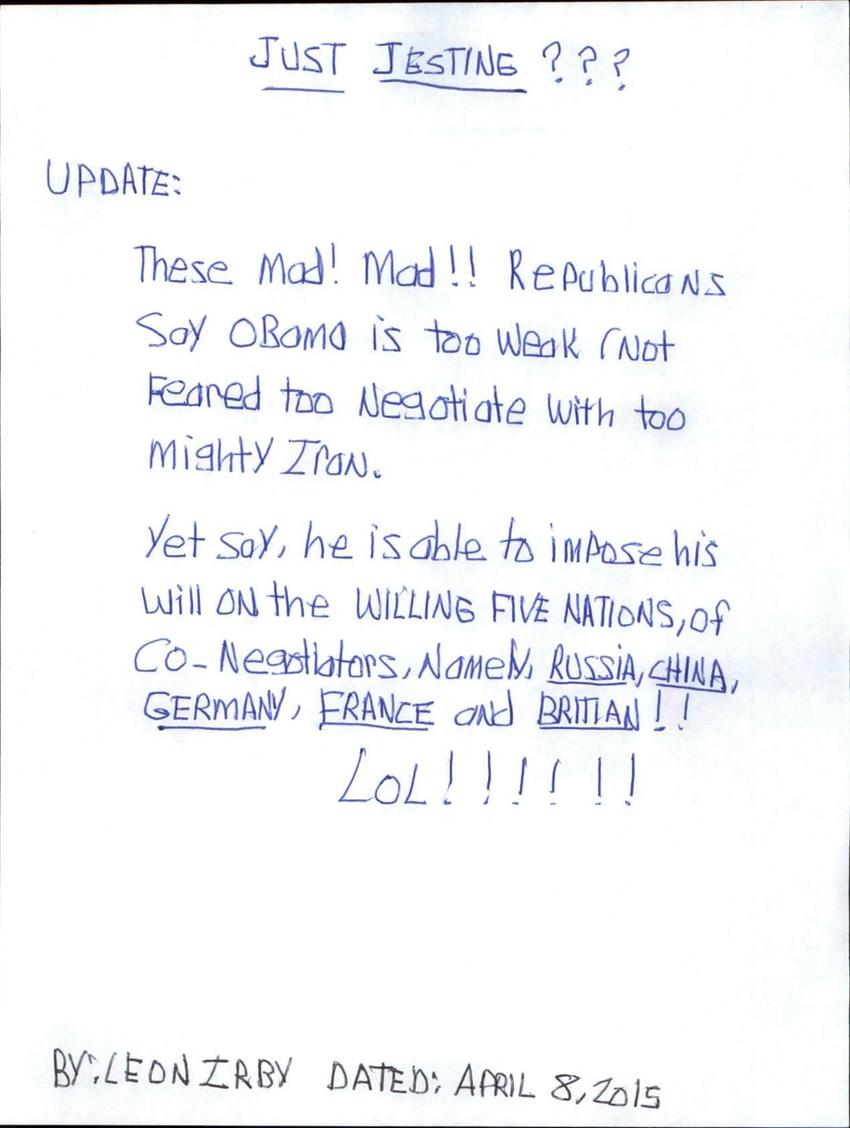 JUST JESTING ???
UPDATE:
These Mad! Mad!! Republicans
Say OBama is too Weak (Not
Feared too Negotiate with too
mighty Iran.
Yet say, he is able to impose his
Will ON the WILLING FIVE NATIONS, of
Co-Negotiators, Namely, RUSSIA, CHINA,
GERMANY, FRANCE and BRITIAN!!
LOL!!!!!!
BY: LEON IRBY DATED: APRIL 8, 2015